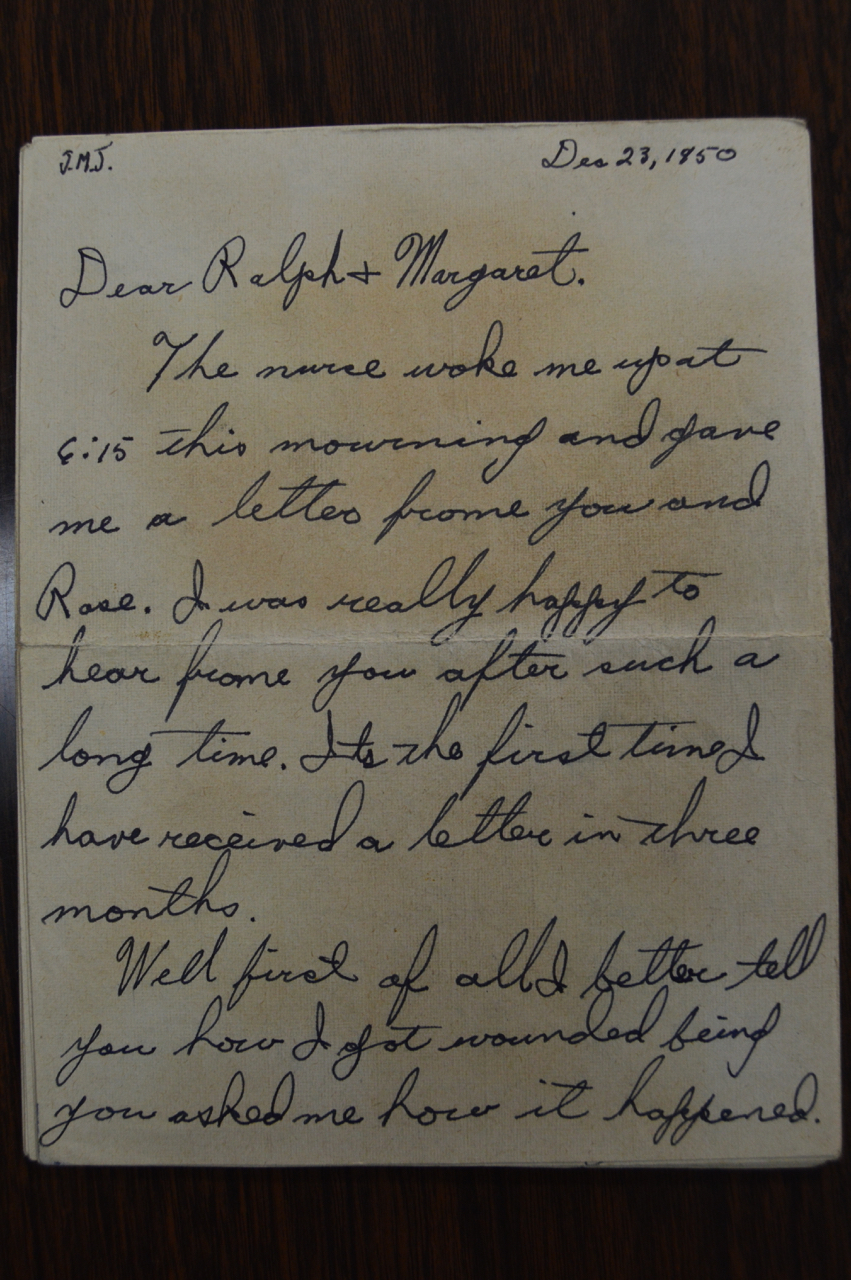 J.M.J.
Dec 23, 1950
Dear Ralph + Margaret.
The nurse woke me up at
6:15 this mourning and gave
me a letter frome you and
Rose. I was really happy to
hear frome you after such a
long time. Its the first time I
have received a letter in three
months.
Well first of all I better tell
you how I got wounded being
you asked me how it happened.